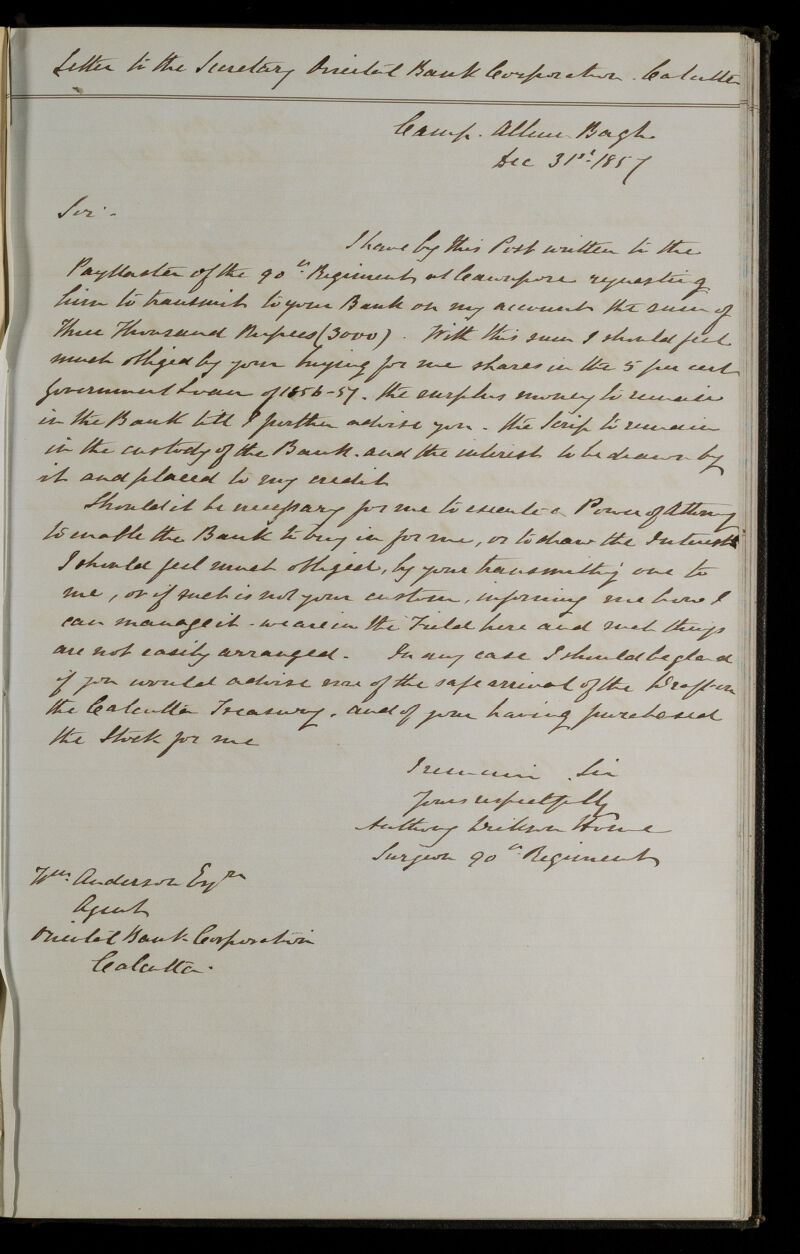 Letter to the Secretary Oriental Bank Corporation. Calcutta
Camp. Allum Bagh
Dec 31st 1857
Sir -
I have by this Post written to the
PayMaster of the 90th Regiment at Cawnpore requesting
him to transmit to your Bank on my account the sum of
Three Thousand Rupees (3000). With this sum I should feel
much obliged by your buying for me shares in the 5 per cent
Government Loan of 1856-57. the surplus money to remain
in the Bank till I further advise you - the Scrip to remain
in the custody of the Bank. and the interest to be drawn by
it and placed to my credit
Should it be necessary for me to execute a Power of Attorney
to enable the Bank to buy in for me, or to draw the Interest
I should feel much obliged, by your transmitting one to
me, or if such is not your custom, informing me how I
can manage it - we are in the Field here and such things
are not easily arranged - In any case I should be glad
if you would advise me of the safe arrival of the Draft on
the Calcutta Treasury. and of your having purchased
the Stock for me
I remain Sir
Yours respectfully
Anthony Dickson Home
Surgeon 90th Regiment
Wm. Anderson Esqre
Agent
Oriental Bank Corporation
Calcutta.